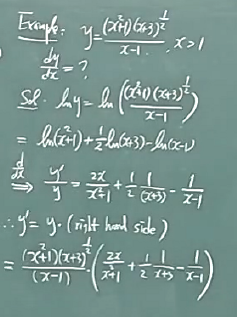 Example: y = (x²+1)(x+3)^(1/2) / (x-1), x>1
dy/dx = ?
Sol: ln y = ln ( (x²+1)(x+3)^(1/2) / (x-1) )
= ln(x²+1) + 1/2 ln(x+3) - ln(x-1)
d/dx ⇒ y'/y = 2x/(x²+1) + 1/2 1/(x+3) - 1/(x-1)
∴ y' = y · (right hand side)
= (x²+1)(x+3)^(1/2) / (x-1) · ( 2x/(x²+1) + 1/2 1/(x+3) - 1/(x-1) )